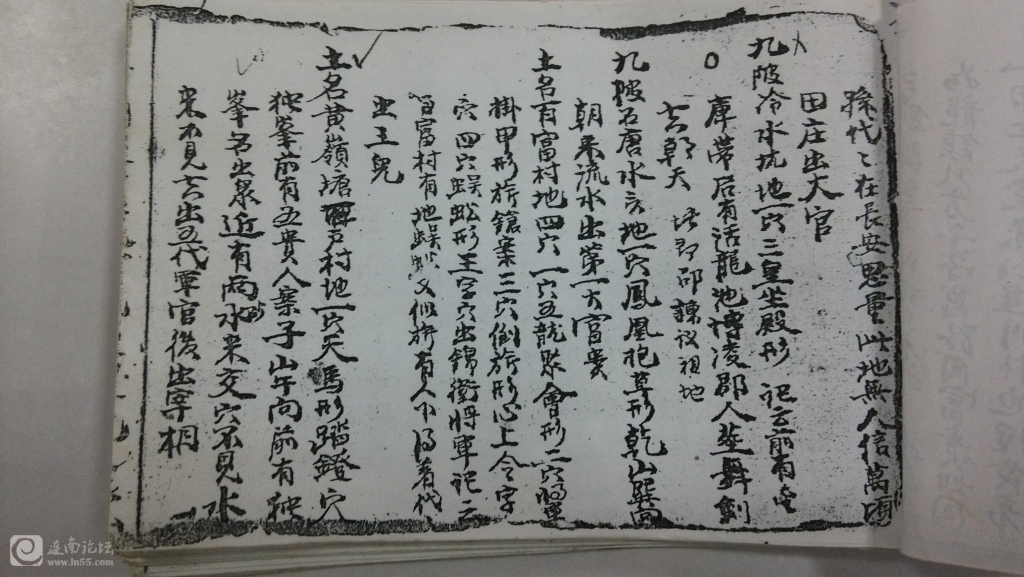 孫代々在長安思量此地無人信萬頃
田庄出大官
九陂冷水坑地一穴三皇坐殿形 记云前有
庫帶后有活龍池博凌郡人葬舞劍
去朝天 邵諫议祖地
九陂石唐水口地一穴鳳凰抱草形乾山巽向
朝来流水出第一大富贵
土名百富村地四穴一穴五龍聚會形二穴將軍
掛甲形旂鎗案三穴倒旂形心上令字
穴四穴蜈蚣形王字穴出錦衛將軍记云
百富村有地蜈蚣又似旂有人下得着代
出王兒
土名黄嶺塘村地一穴天馬形踏鐙穴
独峯前有五贵人案子山午向前有独
峯名出泉近有两水来交穴不見水
来不見去出五代軍官後出宰相
连南论坛
www.ln55.com